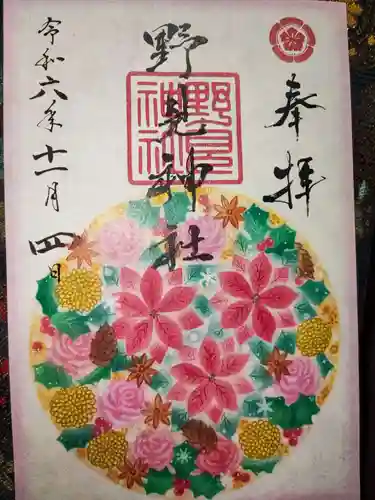 奉拝
野見神社
野見
神社
令和六年十一月四日